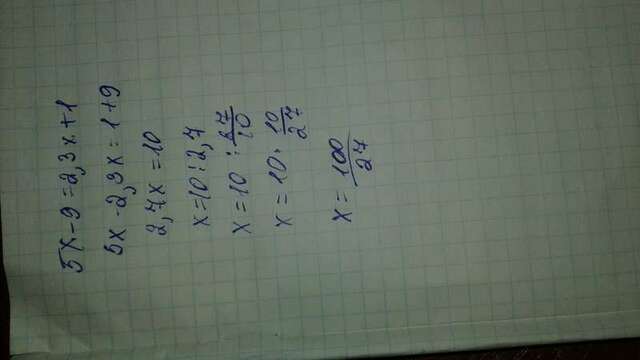 5x-9=2,3x+1
5x-2,3x=1+9
2,7x=10
x=10:2,7
x=10:27/10
x=10·10/27
x=100/27